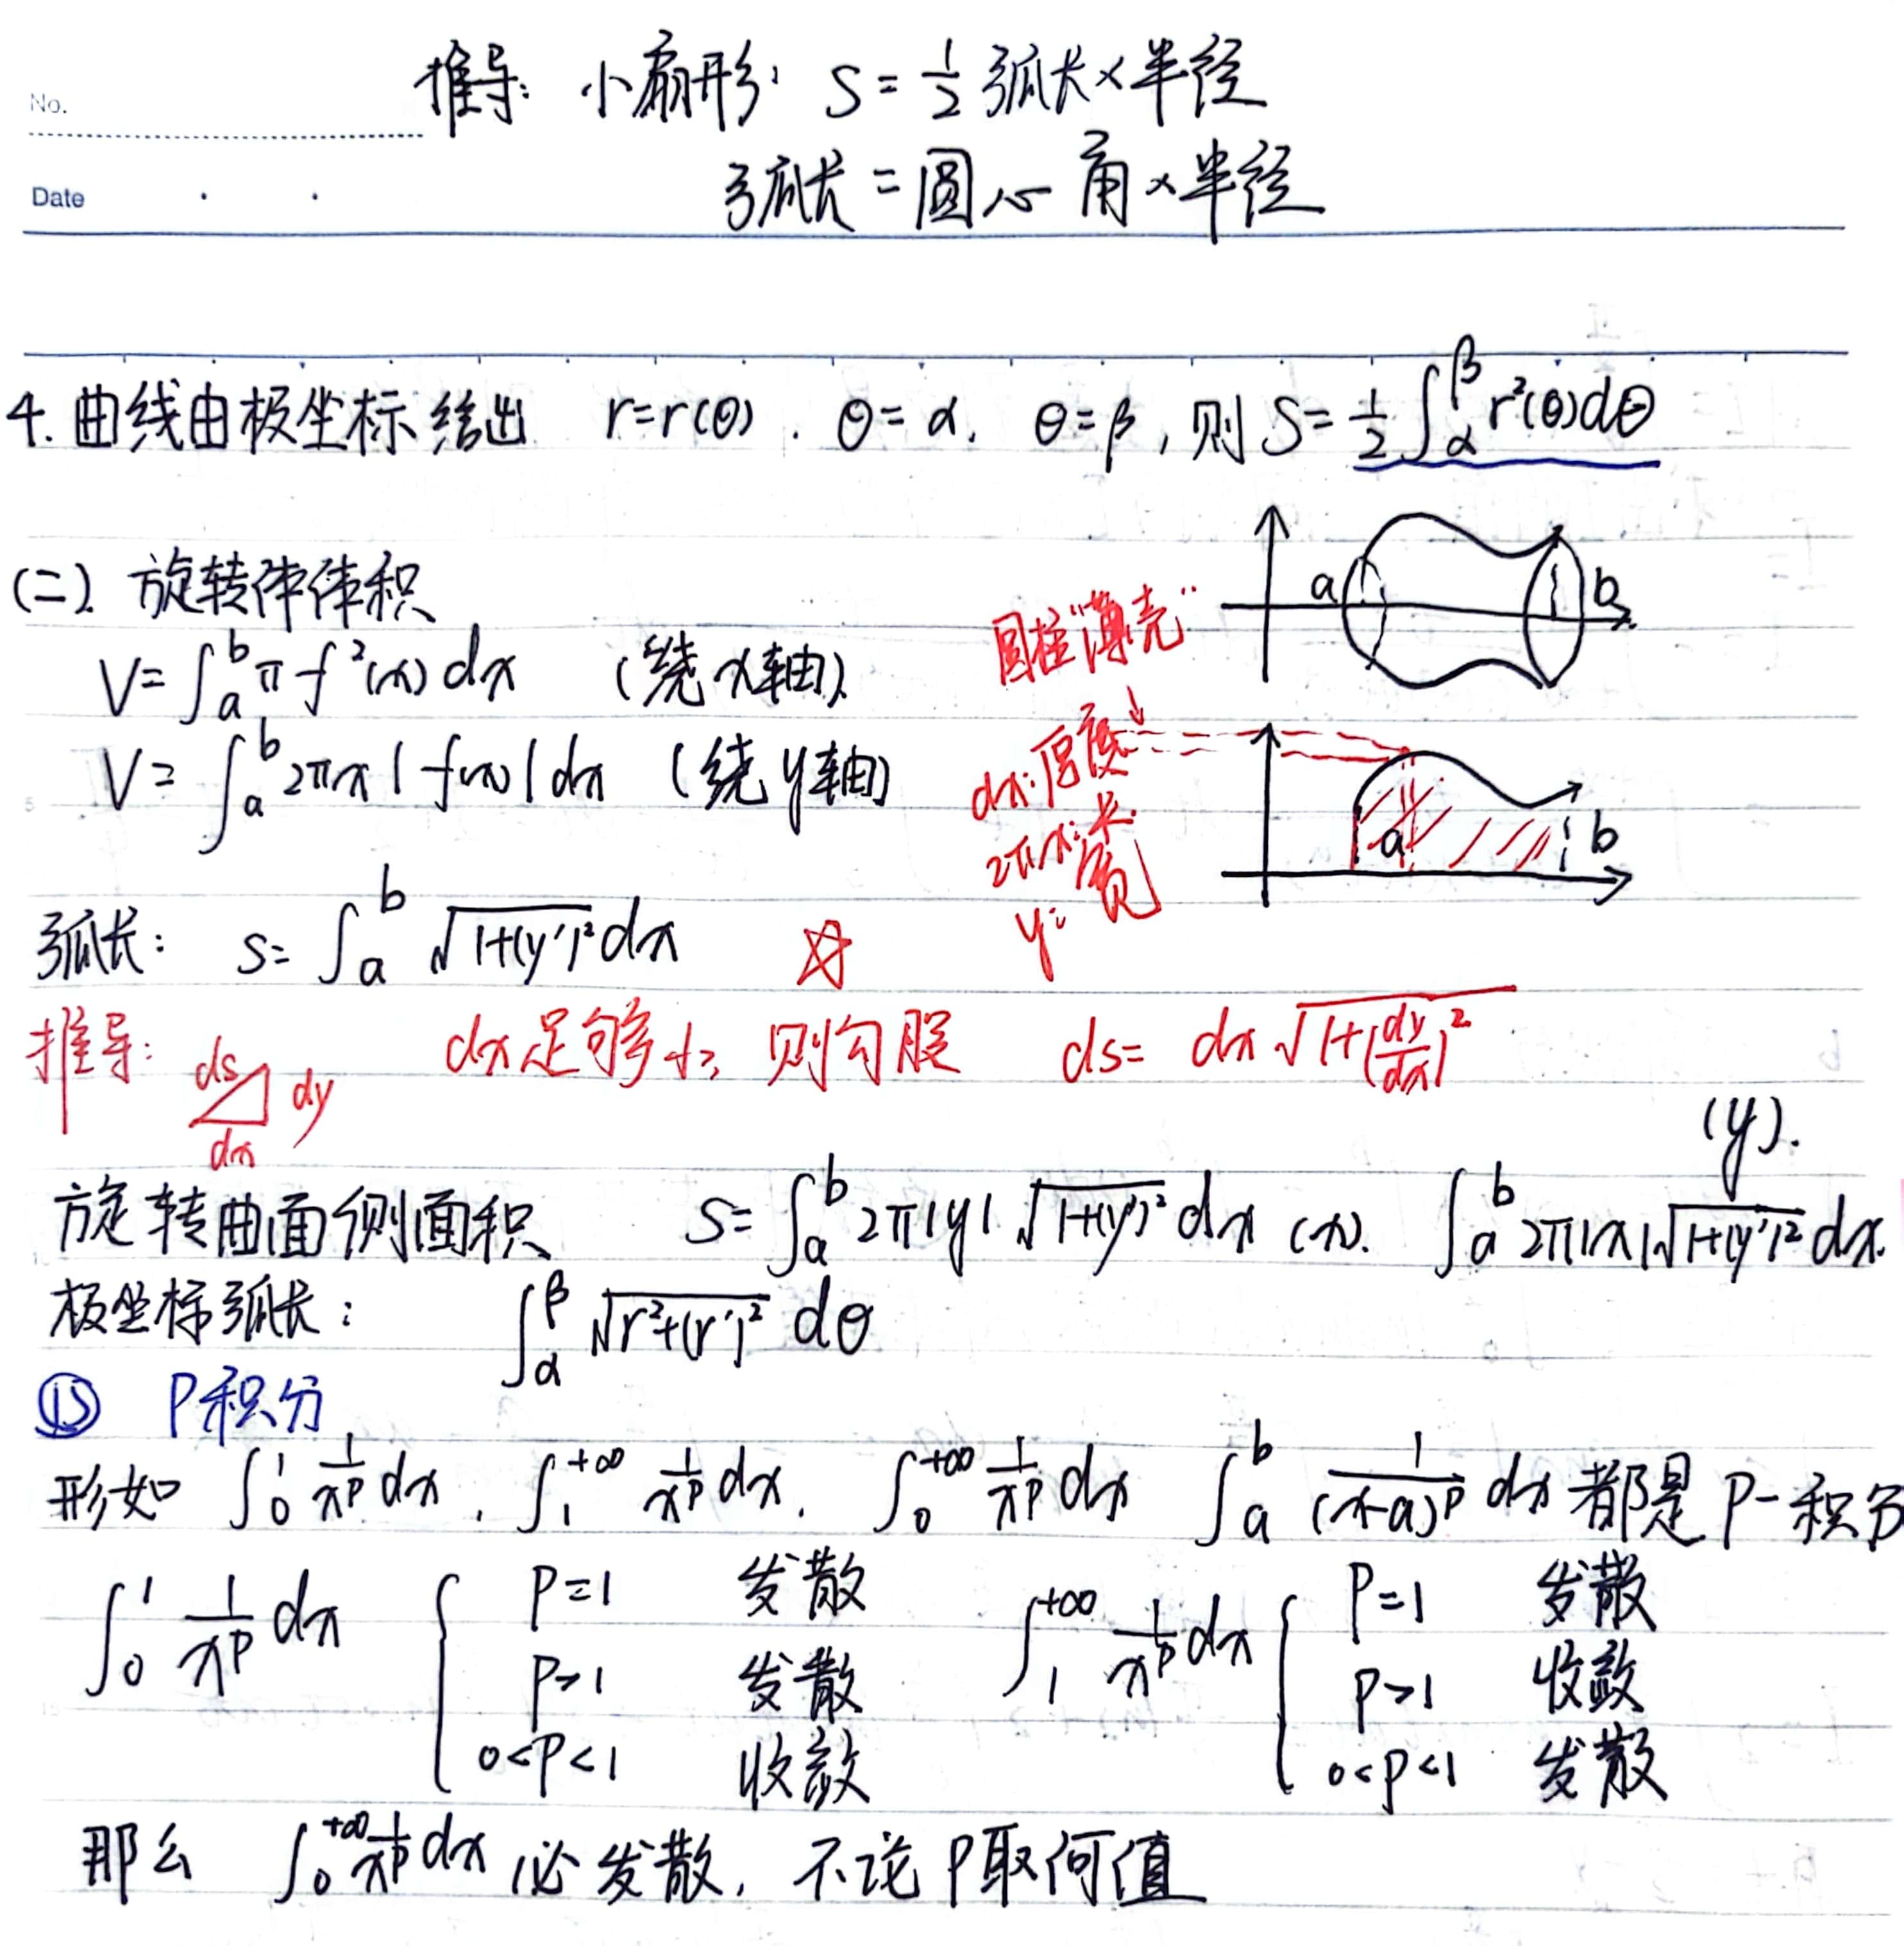 No.
推导: 小扇形: S = 1/2 弧长×半径
Date
弧长 = 圆心角×半径
4. 曲线由极坐标给出 r=r(θ). θ=α. θ=β, 则 S = 1/2 ∫_α^β r²(θ)dθ
(二). 旋转体体积
a b
V = ∫_a^b π f²(x) dx (绕x轴)
圆柱"薄壳"
V = ∫_a^b 2πx | f(x) | dx (绕y轴)
dx: 厚度
2πx: 长
y: 宽
a b
弧长: S = ∫_a^b √(1+(y')²) dx
推导: ds dy dx dx足够小, 则勾股 ds = dx √(1+(dy/dx)²)
旋转曲面侧面积 S = ∫_a^b 2π|y| √(1+(y')²) dx (x). ∫_a^b 2π|x|√(1+(y')²) dx. (y).
极坐标弧长: ∫_α^β √(r²+(r')²) dθ
⑮ P积分
形如 ∫_0^1 1/x^p dx, ∫_1^{+∞} 1/x^p dx. ∫_0^{+∞} 1/x^p dx ∫_a^b 1/(x-a)^p dx 都是 P-积分
∫_0^1 1/x^p dx { P=1 发散
P>1 发散
0<P<1 收敛
∫_1^{+∞} 1/x^p dx { P=1 发散
P>1 收敛
0<P<1 发散
那么 ∫_0^{+∞} 1/x^p dx 必发散, 不论P取何值